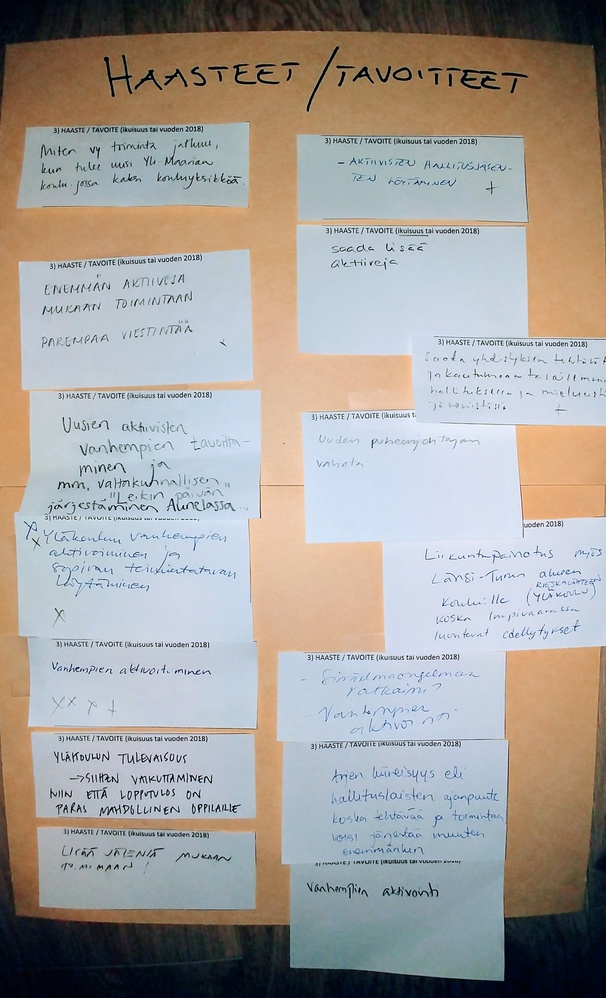 HAASTEET / TAVOITTEET
3) HAASTE / TAVOITE (ikuisuus tai vuoden 2018)
Miten vy toiminta jatkuu,
kun tulee uusi Yli-Maarian
koulu jossa kaksi kouluyksikköä
3) HAASTE / TAVOITE (ikuisuus tai vuoden 2018)
ENEMMÄN AKTIIVEJA
MUKAAN TOIMINTAAN
PAREMPAA VIESTINTÄÄ
x
3) HAASTE / TAVOITE (ikuisuus tai vuoden 2018)
Uusien aktiivisten
vanhempien tavoitta-
minen ja
mm. valtakunnallisen
"Leikin päivän"
järjestäminen Aunelassa...
3) HAASTE / TAVOITE (ikuisuus tai vuoden 2018)
X
x Yläkoulun vanhempien
aktivoiminen ja
sopivan toimintatavan
löytäminen
X
3) HAASTE / TAVOITE (ikuisuus tai vuoden 2018)
Vanhempien aktivoituminen
X X X +
3) HAASTE / TAVOITE (ikuisuus tai vuoden 2018)
YLÄKOULUN TULEVAISUUS
→ SIIHEN VAIKUTTAMINEN
NIIN ETTÄ LOPPUTULOS ON
PARAS MAHDOLLINEN OPPILAILLE
3) HAASTE / TAVOITE (ikuisuus tai vuoden 2018)
LISÄÄ JÄSENIÄ MUKAAN
TOIMIMAAN!
3) HAASTE / TAVOITE (ikuisuus tai vuoden 2018)
- AKTIIVISTEN HALLITUSJÄSEN-
TEN LÖYTÄMINEN
+
3) HAASTE / TAVOITE (ikuisuus tai vuoden 2018)
saada lisää
aktiiveja
3) HAASTE / TAVOITE (ikuisuus tai vuoden 2018)
Saada yhdistyksen tehtävät
jakautumaan tasaisemmin
hallituksessa ja
+
3) HAASTE / TAVOITE (ikuisuus tai vuoden 2018)
Uuden puheenjohtajan
valinta
vuoden 2018)
Liikuntapainotus myös
Länsi-Turun alueen
kouluille (YLÄKOULU)
koska Impivaarassa
luontevat edellytykset
3) HAASTE / TAVOITE (ikuisuus tai vuoden 2018)
- Sisäilmaongelman
ratkaisu?
- Vanhempien
aktivointi
3) HAASTE / TAVOITE (ikuisuus tai vuoden 2018)
Arjen kiireisyys eli
hallituslaisten ajanpuute
koska tehtävää ja toimintaa
voisi järjestää muuten
enemmänkin
3) HAASTE / TAVOITE (ikuisuus tai vuoden 2018)
Vanhempien aktivointi